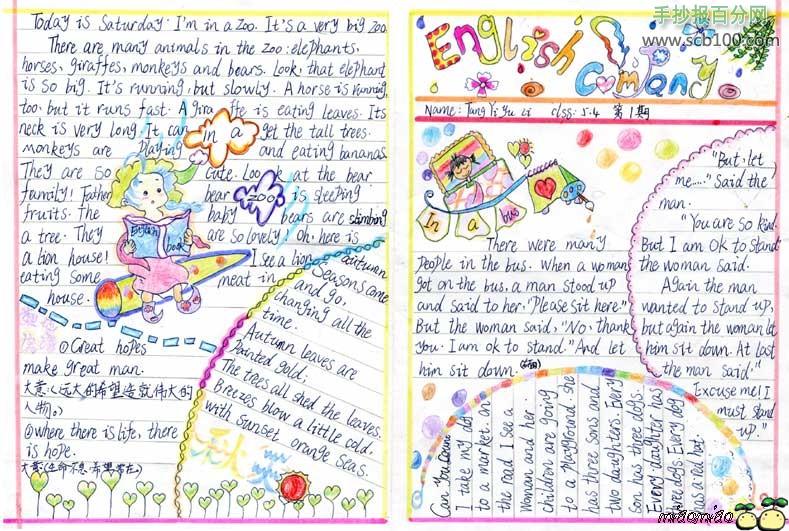 Today is Saturday. I'm in a zoo. It's a very big zoo.
There are many animals in the zoo: elephants,
horses, giraffes, monkeys and bears. Look, that elephant
is so big. It's running, but slowly. A horse is running,
too, but it runs fast. A giraffe is eating leaves. Its
neck is very long. It can get the tall trees.
monkeys are playing and eating bananas.
They are so cute. Look at the bear
family! Father bear is sleeping
fruits. The baby bears are climbing
a tree. They are so lovely. Oh, here is
a lion house! I see a lion
eating some meat in
house.
in a
zoo
English
book
①Great hopes
make great man.
大意:(远大的希望造就伟大的
人物。)
②where there is life, there
is hope.
大意(生命不息,希望常在。)
autumn
Seasons come
and go.
changing all the
time.
Autumn leaves are
Painted gold;
The trees all shed the leaves.
Breezes blow a little cold.
with sunset orange seas.
秋
手抄报百分网
www.scb100.com
English
Company
Name: Tang Yi Yu Li class: 5.4 第1期
In a bus
There were many
people in the bus. When a woman
got on the bus, a man stood up
and said to her, "Please sit here."
But the woman said, "No, thank
you. I am ok to stand." And let
him sit down.
"But, let
me....." Said the
man.
"You are so kind.
But I am ok to stand"
the woman said.
Again the man
wanted to stand up,
but again the woman let
him sit down. At last
the man said."
Excuse me! I
must stand
up."
Can You Count
I take my dog
to a market. on
the road I see a
woman and her
children are going
to a playground. she
has three sons and
two daughters. Every
son has three dogs.
Every daughter has
three dogs. Every dog
has a red hat.
miaomiao